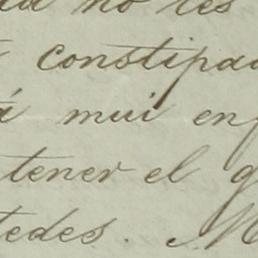 no les
constipa
á mui en
tener el g
tedes. M